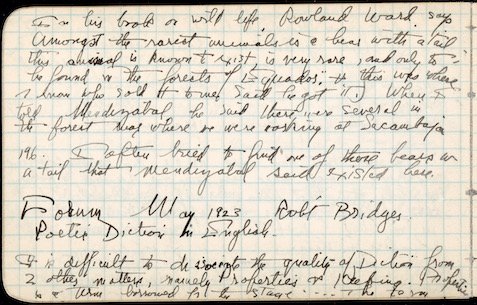 In his book on wild life, Rowland Ward, says
Amongst the rarest animals is a bear with a tail
this animal is known to exist, is very rare, and only to
be found in the forests of Equador. + this was where
man who sold it to me said he got it. When I
told Mendizabal he said there were several in
the forest near where we were working at Sacambaja
196. I often tried to find one of those bears w
a tail that Mendizabal said existed here.
Forum May 1923 Robt Bridges.
Poetic Diction in English.
It is difficult to dissociate the quality of Diction from
2 other matters, namely Properties or Keeping. Properties
is a term borrowed for the stage the term